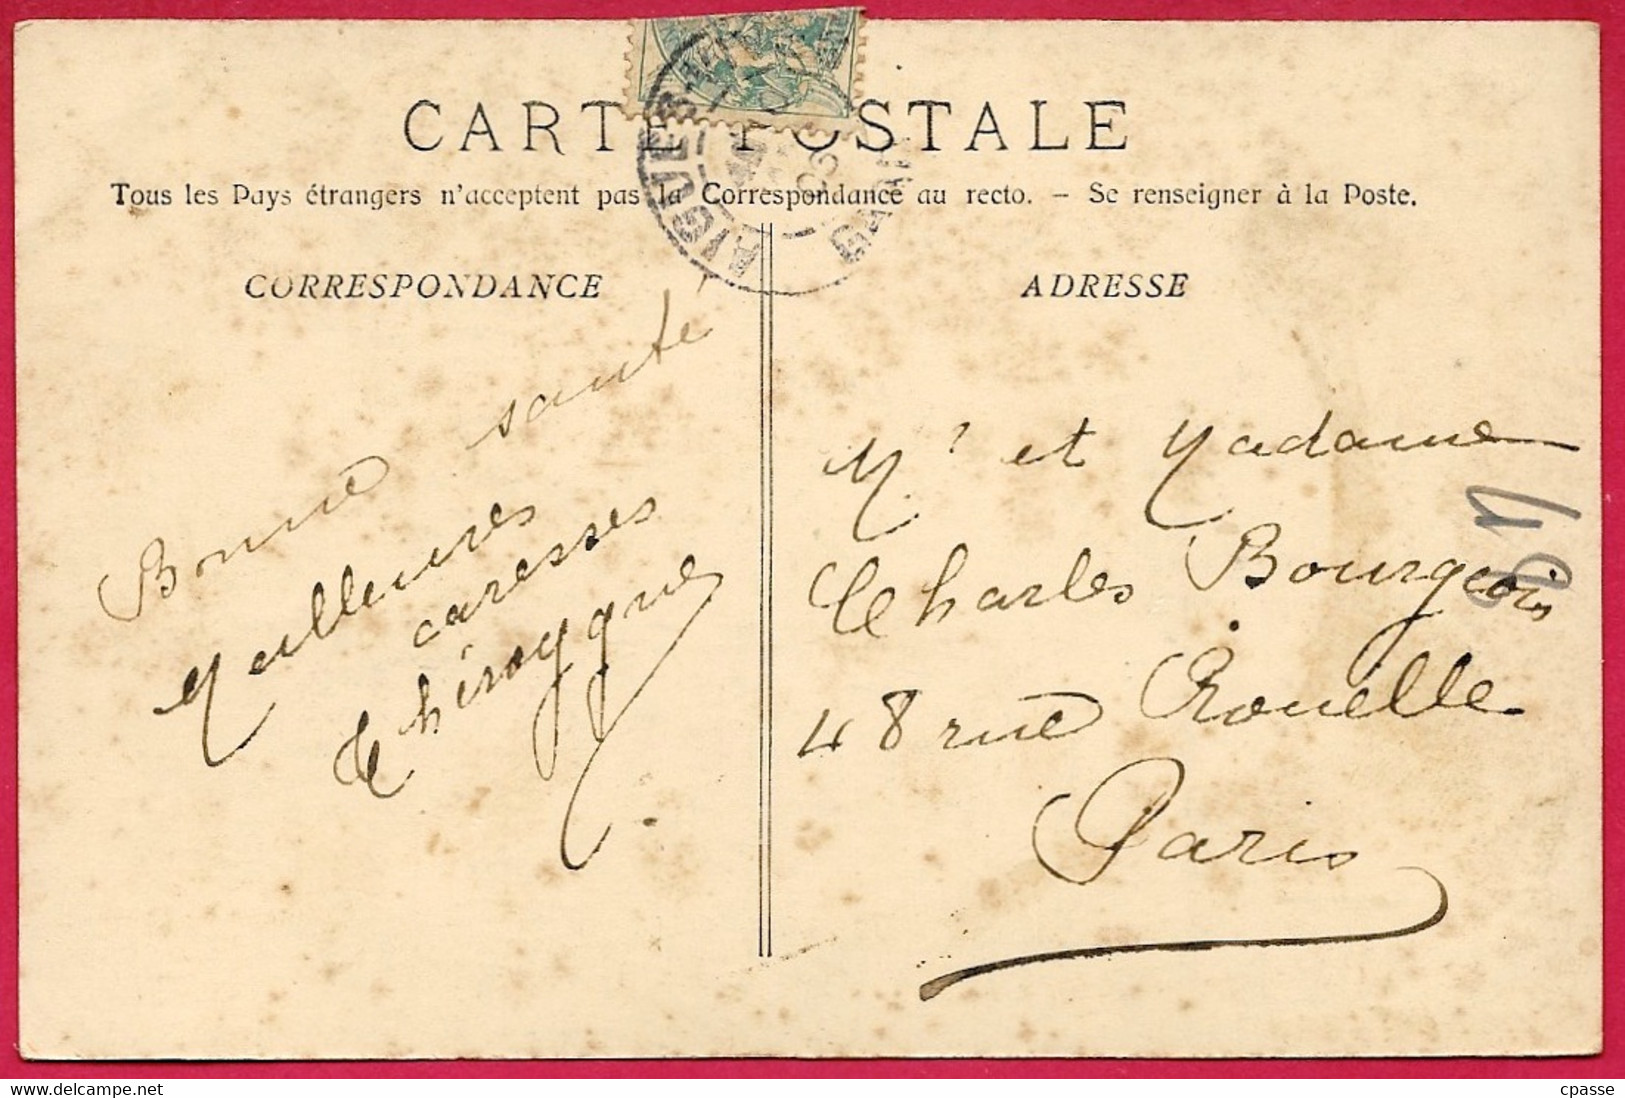 CARTE POSTALE
Tous les Pays étrangers n'acceptent pas la Correspondance au recto. – Se renseigner à la Poste.
CORRESPONDANCE
ADRESSE
AIGUES
GARD
Bonne santé
Meilleures
caresses
Mr et Madame
Charles Bourgeois
48 rue Rouelle
Paris
cpasse